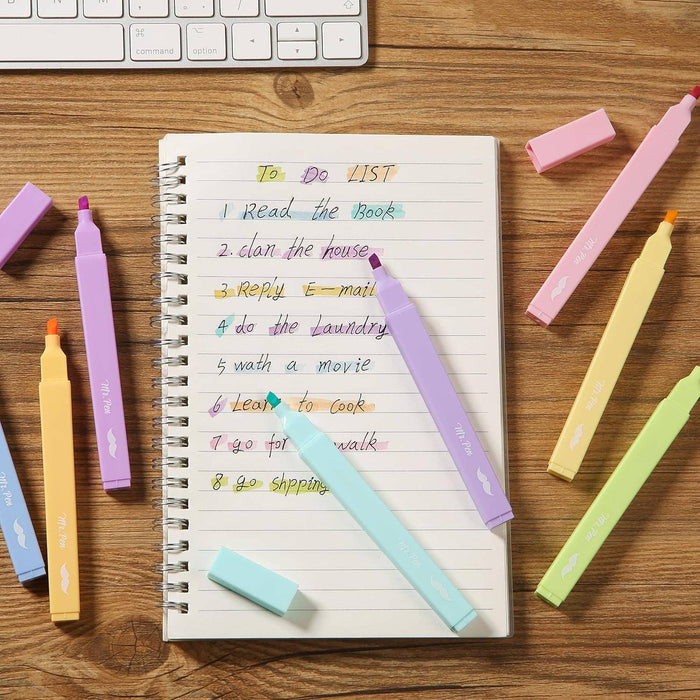 command
option
shift
To Do LIST
1 Read the Book
2. clan the house
3 Reply E-mail
4 do the Laundry
5 wath a movie
6 Learn to cook
7 go for walk
8 go shpping
Mr. Pen
Mr. Pen
Mr. Pen
Mr. Pen
Mr. Pen
Mr. Pen
Mr. Pen
Mr. Pen